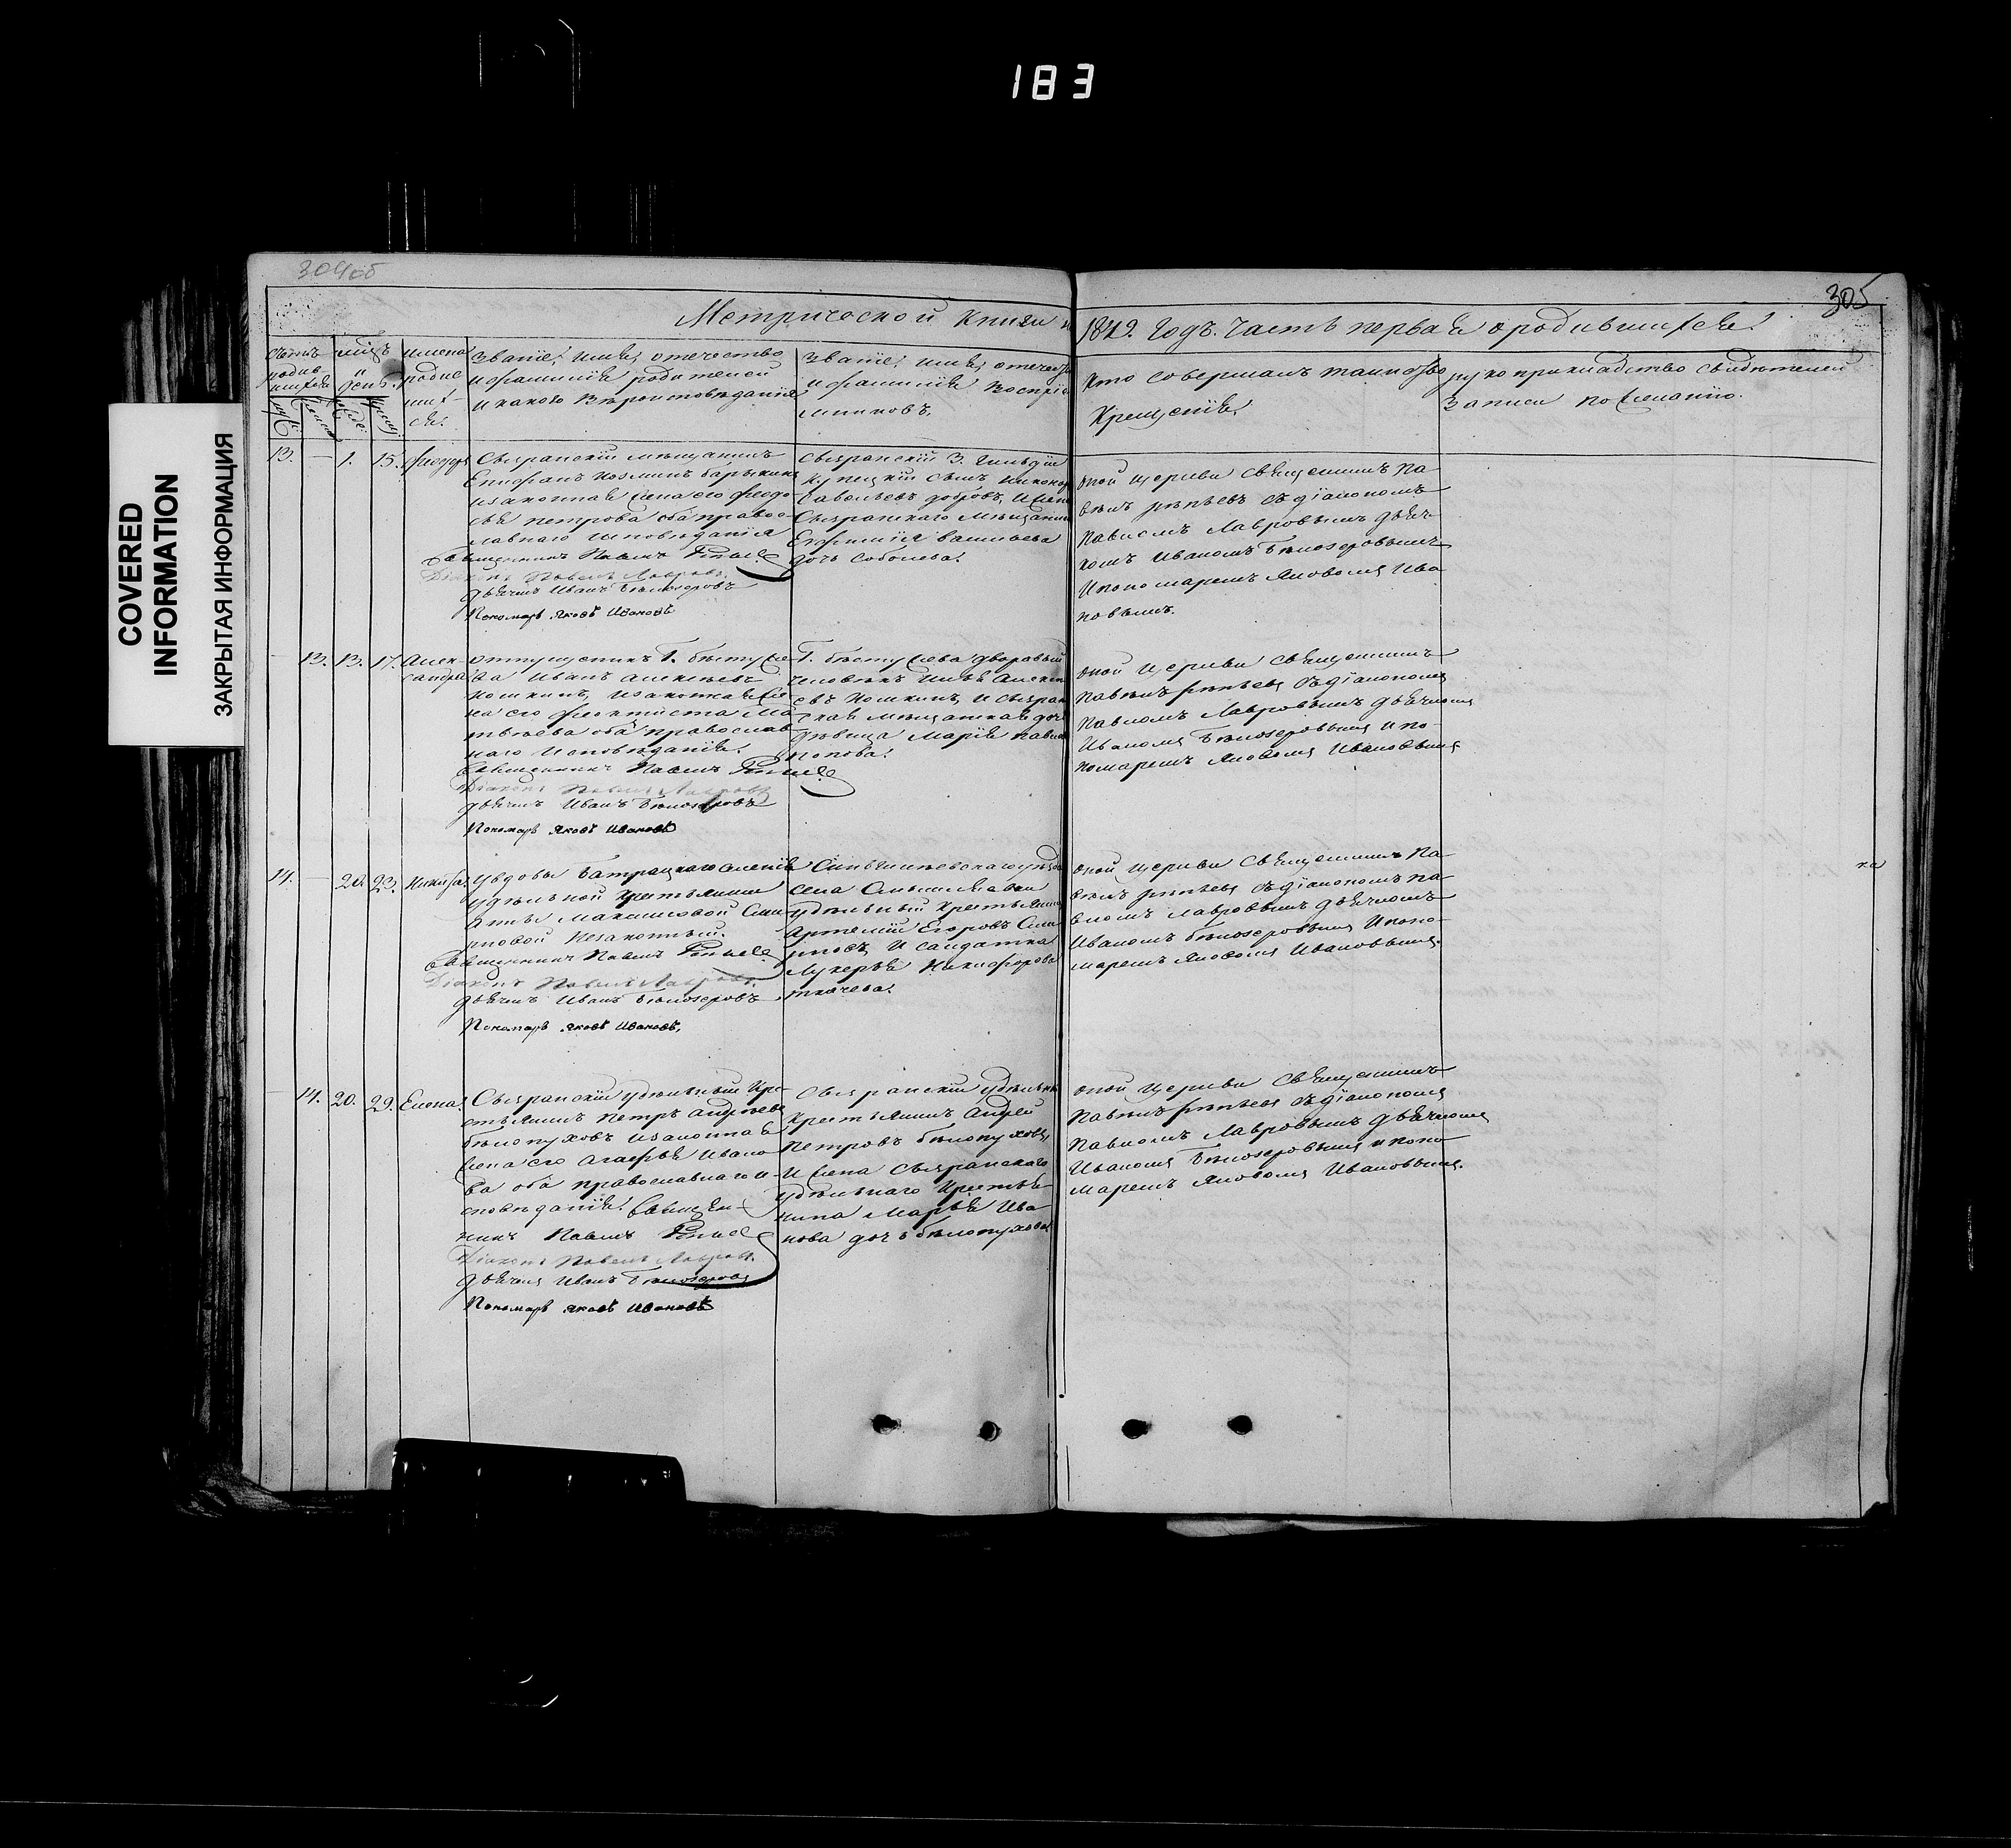 183
COVERED
INFORMATION
ЗАКРЫТАЯ ИНФОРМАЦИЯ
304об
305
Метрической книги на
1842. Годъ. Часть первая о родившихся.
Счетъ родив-шихся
мѣцъ и день.
имена родив-шихся.
Званіе, имя, отечество
и фамилія родителей
и какого вѣроисповѣданія
Званіе, имя, отечество
и фамилія воспріе
мниковъ.
Кто совершалъ таинство
Крещенія.
рукоприкладство свидѣтелей
записи по желанію.
13. — 1. 15. Феодоръ
Сызранскій мѣщанинъ
Епифанъ Козминъ барыкинъ
и законная жена его Феодо-
сья петрова оба правос-
лавного исповѣданія
Священникъ Павелъ
Діаконъ Павелъ Лавровъ
дьячекъ Иванъ Бѣлозеровъ
Пономарь Яковъ Ивановъ
Сызранскій 3. Гильдіи
Купецкій сынъ
Савельевъ добровъ, и жена
Сызранскаго мѣщанина
Евфимія васильева
дочь Соболева.
оной церкви Священникъ Па-
велъ съ діакономъ
Павломъ Лавровымъ дьяч-
комъ Иваномъ Бѣлозеровымъ
и пономаремъ Яковомъ Ива
новымъ.
— 13. 13. 17. Алек-
сандра
отпущеникъ Г. бѣстуже-
ва Иванъ алексѣевъ
кошкинъ, и законная же-
на его феоктиста Ма-
твѣева оба православ-
наго исповѣданія.
Священникъ Павелъ
Діаконъ Павелъ Лавровъ
дьячекъ Иванъ Бѣлозеровъ
Пономарь Яковъ Ивановъ
Г. бѣстужева дворовый
человѣкъ
кошкинъ, и сызран
ская мѣщанская дочь
дѣвица Марія павло
попова.
оной церкви Священникъ
Павелъ съ діакономъ
Павломъ Лавровымъ дьячкомъ
Иваномъ Бѣлозеровымъ и по-
номаремъ Яковомъ Ивановымъ
14. — 20. 23. Никита.
У вдовы Батрацкаго селенія
удѣльной крестьянки
Максимовой Сми
рновой незаконный.
Священникъ Павелъ
Діаконъ Павелъ Лавровъ
дьячекъ Иванъ Бѣлозеровъ
Пономарь Яковъ Ивановъ.
села
удѣльный крестьянинъ
Артемій Егоровъ Сми
рновъ, и салдатка
Лукерья Никифорова
ткачева.
оной церкви Священникъ Па-
велъ съ діакономъ па-
вломъ лавровымъ дьячкомъ
Иваномъ бѣлозеровымъ и поно-
маремъ Яковомъ Ивановымъ.
— 14. 20. 29. Елена.
Сызранскій удѣльный кре-
стьянинъ Петръ Андреевъ
бѣлопуховъ и законная
жена его Агафья Ивано
ва оба православнаго и-
сповѣданія. Священ-
никъ Павелъ
Діаконъ Павелъ Лавровъ.
дьячекъ Иванъ Бѣлозеровъ
Пономарь Яковъ Ивановъ
Сызранскій удѣльный
крестьянинъ Андрей
Петровъ бѣлопуховъ,
и жена Сызранскаго
удѣльнаго крестья-
нина Марья Ива
нова дочь бѣлопухова
оной церкви Священникъ
Павелъ съ діакономъ
Павломъ Лавровымъ дьячкомъ
Иваномъ Бѣлозеровымъ и поно
маремъ Яковомъ Ивановымъ.